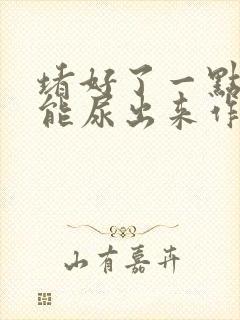 堵好了一點
能尿出来作
山有嘉卉